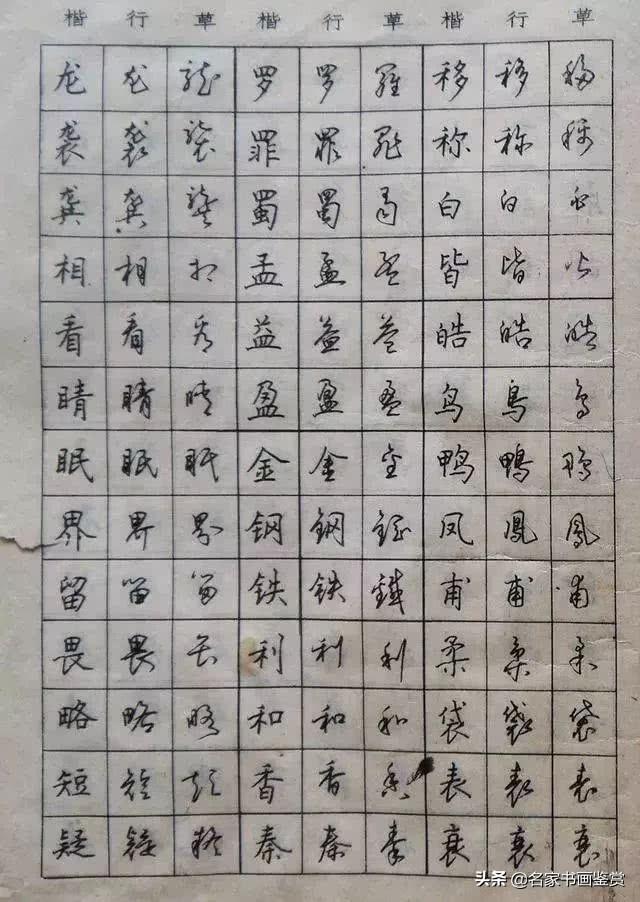 楷 行 草 楷 行 草 楷 行 草
龙 龙 龍 罗 罗 羅 移 移 移
袭 袭 襲 罪 罪 罪 称 称 称
龚 龚 龔 蜀 蜀 蜀 白 白 白
相 相 相 孟 孟 孟 皆 皆 皆
看 看 看 益 益 益 皓 皓 皓
睛 睛 睛 盈 盈 盈 鸟 鳥 鸟
眠 眠 眠 金 金 金 鸭 鴨 鸭
界 界 界 钢 鋼 鋼 凤 鳳 鳳
留 留 留 铁 铁 鐵 甫 甫 甫
畏 畏 畏 利 利 利 柔 柔 柔
略 略 略 和 和 和 袋 袋 袋
短 短 短 香 香 香 表 表 表
疑 疑 疑 秦 秦 秦 衰 衰 衰
头条 @名家书画鉴赏